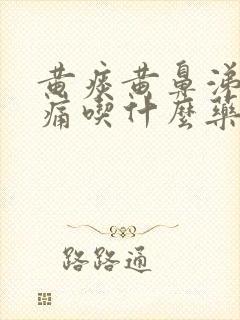 黄痰黄鼻涕
痛喫什麼藥
路路通